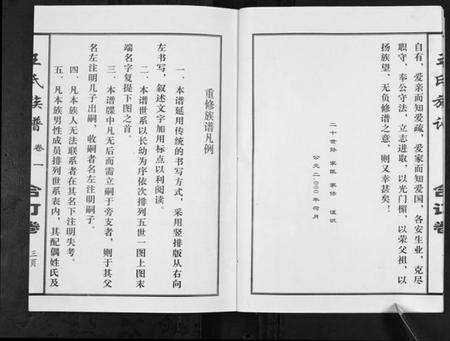 自有，爱亲而知爱疏，爱家而知爱国，各安生业，克尽
职守，奉公守法，立志进取，以光门楣，以荣父祖，以
扬族望，无负修谱之意，则又幸甚矣！
公元二000年
重修族谱凡例
一、本谱延用传统的书写方式，采用竖排版从右向
左书写，叙述文字加用标点以利阅读。
二、本谱世系以长幼为序依次排列五世一图上图末
端名字复提下图之首。
三、本谱牒中凡无后而需立嗣于旁支者，则于其父
名左注明儿子出嗣，收嗣者名左注明嗣子。
四、凡本族人无法联系者在其名下注明失考。
五、凡本族男性成员排列世系表内，其配偶姓氏及
王氏族谱
卷一
合订卷
三页
合订卷